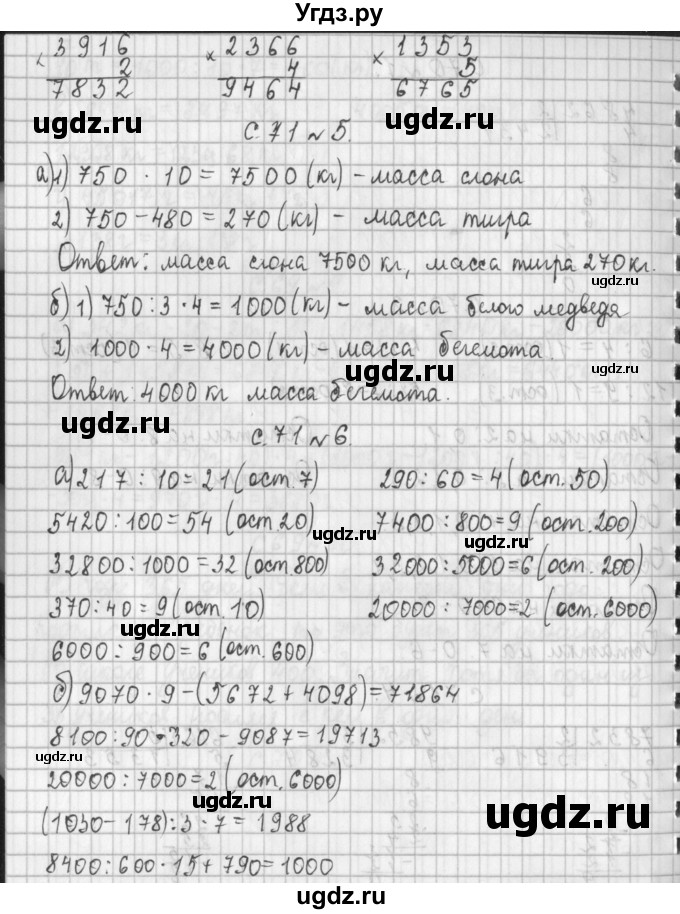 Угдз.ру
3916 × 2366 × 1353
2 4 5
7832 9464 6765
ugdz.ru ugdz.ru ugdz.ru
с. 71 № 5.
а) 1) 750 · 10 = 7500 (кг) - масса слона
2) 750 - 480 = 270 (кг) - масса тигра
Ответ: масса слона 7500 кг, масса тигра 270 кг.
б) 1) 750 : 3 · 4 = 1000 (кг) - масса белого медведя
2) 1000 · 4 = 4000 (кг) - масса бегемота.
ugdz.ru
Ответ: 4000 кг масса бегемота.
ugdz.ru
с. 71 № 6.
а) 217 : 10 = 21 (ост. 7) 290 : 60 = 4 (ост. 50)
5420 : 100 = 54 (ост. 20) 7400 : 800 = 9 (ост. 200)
ugdz.ru ugdz.ru
32800 : 1000 = 32 (ост. 800) 32000 : 5000 = 6 (ост. 200)
370 : 40 = 9 (ост. 10) 20000 : 7000 = 2 (ост. 6000)
ugdz.ru
6000 : 900 = 6 (ост. 600)
б) 9070 · 9 - (5672 + 4098) = 71864
8100 : 90 · 320 - 9087 = 19713
ugdz.ru
20000 : 7000 = 2 (ост. 6000)
ugdz.ru
ugdz.ru
(1030 - 178) : 3 · 7 = 1988
8400 : 600 · 15 + 790 = 1000
ugdz.ru